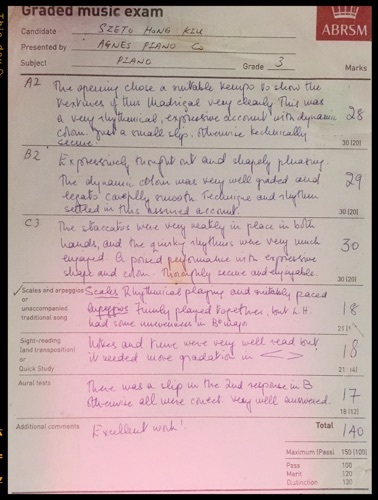 Graded music exam
ABRSM
Candidate SZETO HONG KIU
Presented by AGNES PIANO Co
Subject PIANO Grade 3 Marks
A2 The opening chose a suitable tempo to show the
textures of this Madrigal very clearly. This was
a very rhythmical, expressive account with dynamic 28
colour. Just a small slip, otherwise technically
secure. 30 (20)
B2 Expressively thought out and shapely phrasing.
The dynamic colour was very well graded and 29
legato carefully smooth. Technique and rhythm
settled in this assured account. 30 (20)
C3 The staccatos were very neatly in place in both
hands, and the quirky rhythms were very much 30
enjoyed. A poised performance with expressive
shape and colour. Thoroughly secure and enjoyable. 30 (20)
Scales and arpeggios Scales Rhythmical playing and suitably paced
or
unaccompanied arpeggios Firmly played together, but L.H. 18
traditional song had some unevenness in major 21 (14)
Sight-reading Notes and time were very well read but 18
(and transposition) it needed more gradation in < >
or
Quick Study 21 (14)
Aural tests There was a slip in the 2nd response in B 17
Otherwise all were correct. Very well answered. 18 (12)
Additional comments Excellent work! Total 140
Maximum (Pass) 150 (100)
Pass 100
Merit 120
Distinction 130